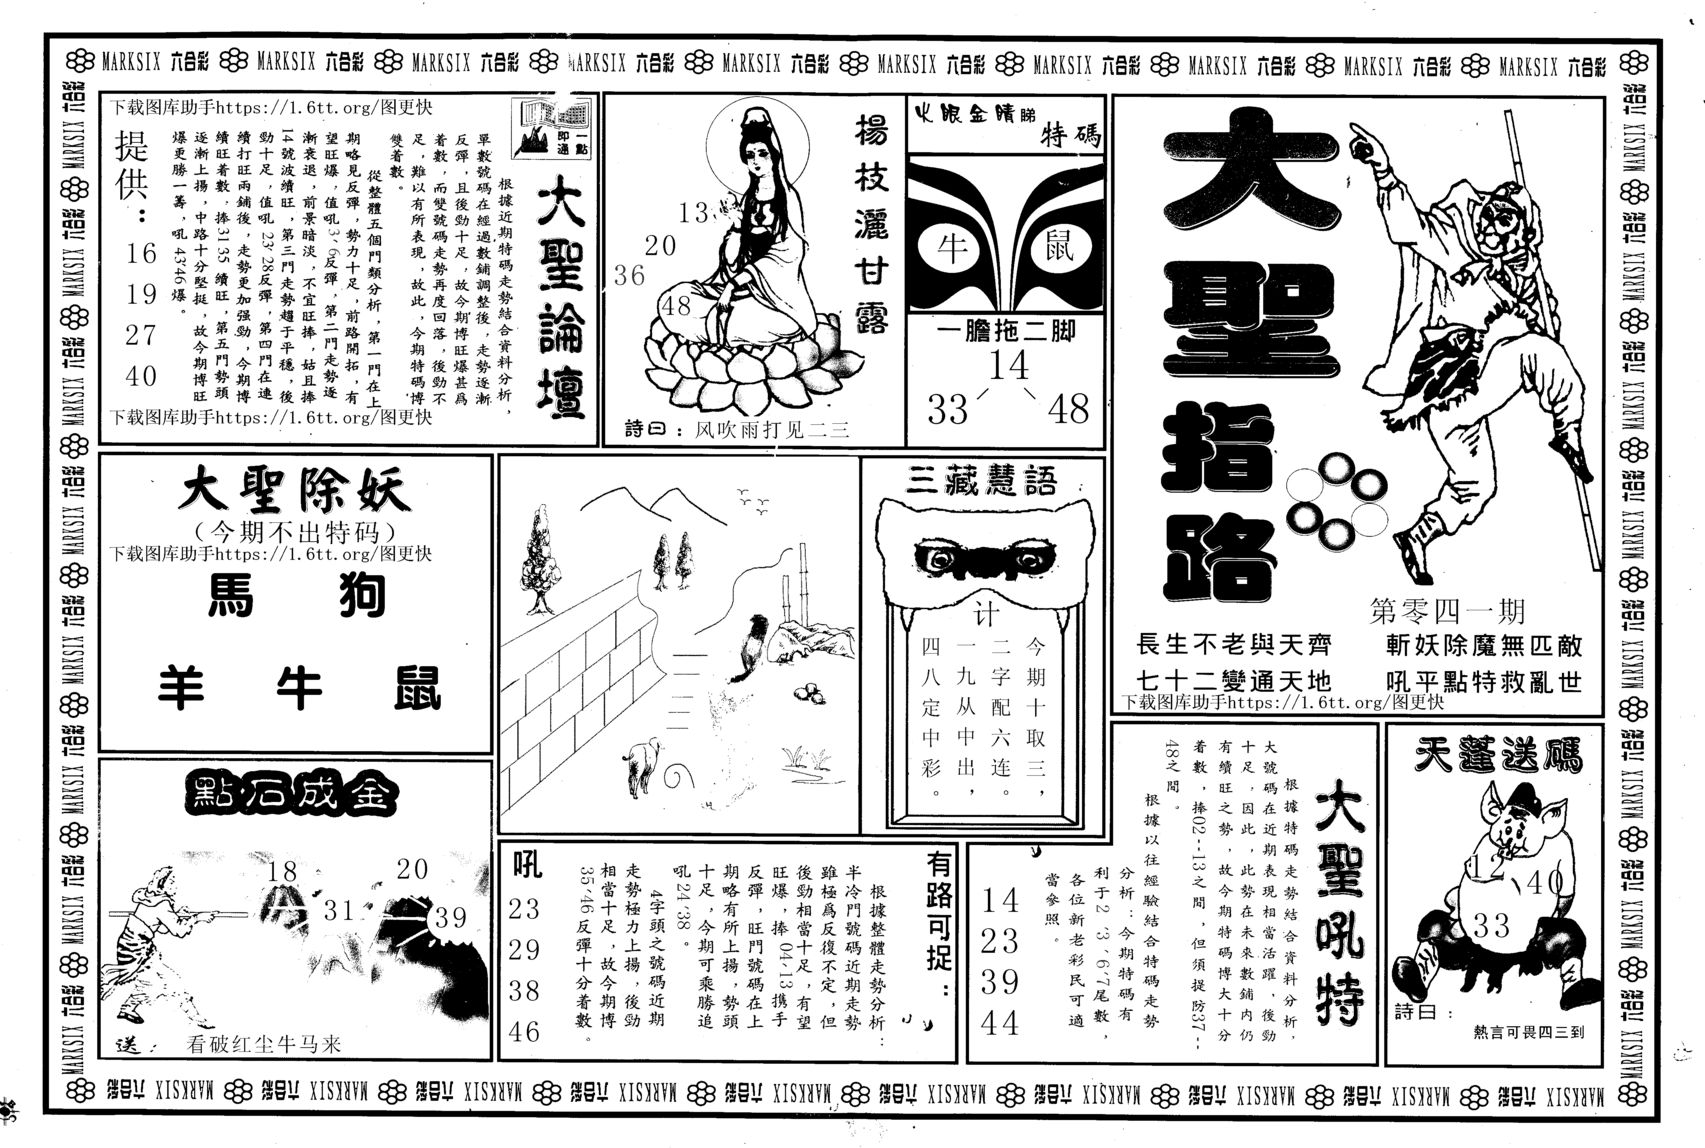 MARKSIX 六合彩 MARKSIX 六合彩 MARKSIX 六合彩 MARKSIX 六合彩 MARKSIX 六合彩 MARKSIX 六合彩 MARKSIX 六合彩 MARKSIX 六合彩 MARKSIX 六合彩 MARKSIX 六合彩
大聖指路
第零四一期
長生不老與天齊
斬妖除魔無匹敵
七十二變通天地
吼平點特救亂世
下载图库助手https://1.6tt.org/图更快
火眼金睛睇
特碼
牛
鼠
一膽拖二脚
14
33
48
楊枝灑甘露
13
20
36
48
詩曰：风吹雨打见二三
下载图库助手https://1.6tt.org/图更快
一點
即通
大聖論壇
根據近期特碼走勢結合資料分析，
單數號碼在經過數鋪調整後，走勢逐漸
反彈，且後勁十足，故今期博旺爆甚爲
着數，而雙號碼走勢再度回落，後勁不
足，難以有所表現，故此，今期特碼博
雙着數。
從整體五個門類分析，第一門在上
期略見反彈，勢力十足，前路開拓，有
望旺爆，值吼3、6反彈，第二門走勢逐
漸衰退，前景暗淡，不宜旺捧，姑且捧
14號波續旺，第三門走勢趨于平穩，後
勁十足，值吼23、28反彈，第四門在連
續打旺兩鋪後，走勢更加强勁，今期博
續旺着數，捧31、35續旺，第五門勢頭
逐漸上揚，中路十分堅挺，故今期博旺
爆更勝一籌，吼43、46爆。
提供：
16
19
27
40
下载图库助手https://1.6tt.org/图更快
大聖除妖
（今期不出特码）
下载图库助手https://1.6tt.org/图更快
馬 狗
羊 牛 鼠
三藏慧語
计
今期十取三，
二字配六连。
一九从中出，
四八定中彩。
點石成金
18
20
31
39
送： 看破红尘牛马来
有路可捉：
根據整體走勢分析：
半冷門號碼近期走勢
雖極爲反復不定，但
後勁相當十足，有望
旺爆，捧04、13携手
反彈，旺門號碼在上
期略有所上揚，勢頭
十足，今期可乘勝追
吼24、38。
4字頭之號碼近期
走勢極力上揚，後勁
相當十足，故今期博
35、46反彈十分着數。
吼
23
29
38
46
大聖吼特
根據特碼走勢結合資料分析，
大號碼在近期表現相當活躍，後勁
十足，因此，此勢在未來數鋪内仍
有續旺之勢，故今期特碼博大十分
着數，捧02--13之間，但須提防37--
48之間。
根據以往經驗結合特碼走勢
分析：今期特碼有
利于2、3、6、7尾數，
各位新老彩民可適
當參照。
14
23
39
44
天蓬送碼
12
40
33
詩曰：
熱言可畏四三到
MARKSIX 六合彩 MARKSIX 六合彩 MARKSIX 六合彩 MARKSIX 六合彩 MARKSIX 六合彩 MARKSIX 六合彩 MARKSIX 六合彩 MARKSIX 六合彩 MARKSIX 六合彩 MARKSIX 六合彩